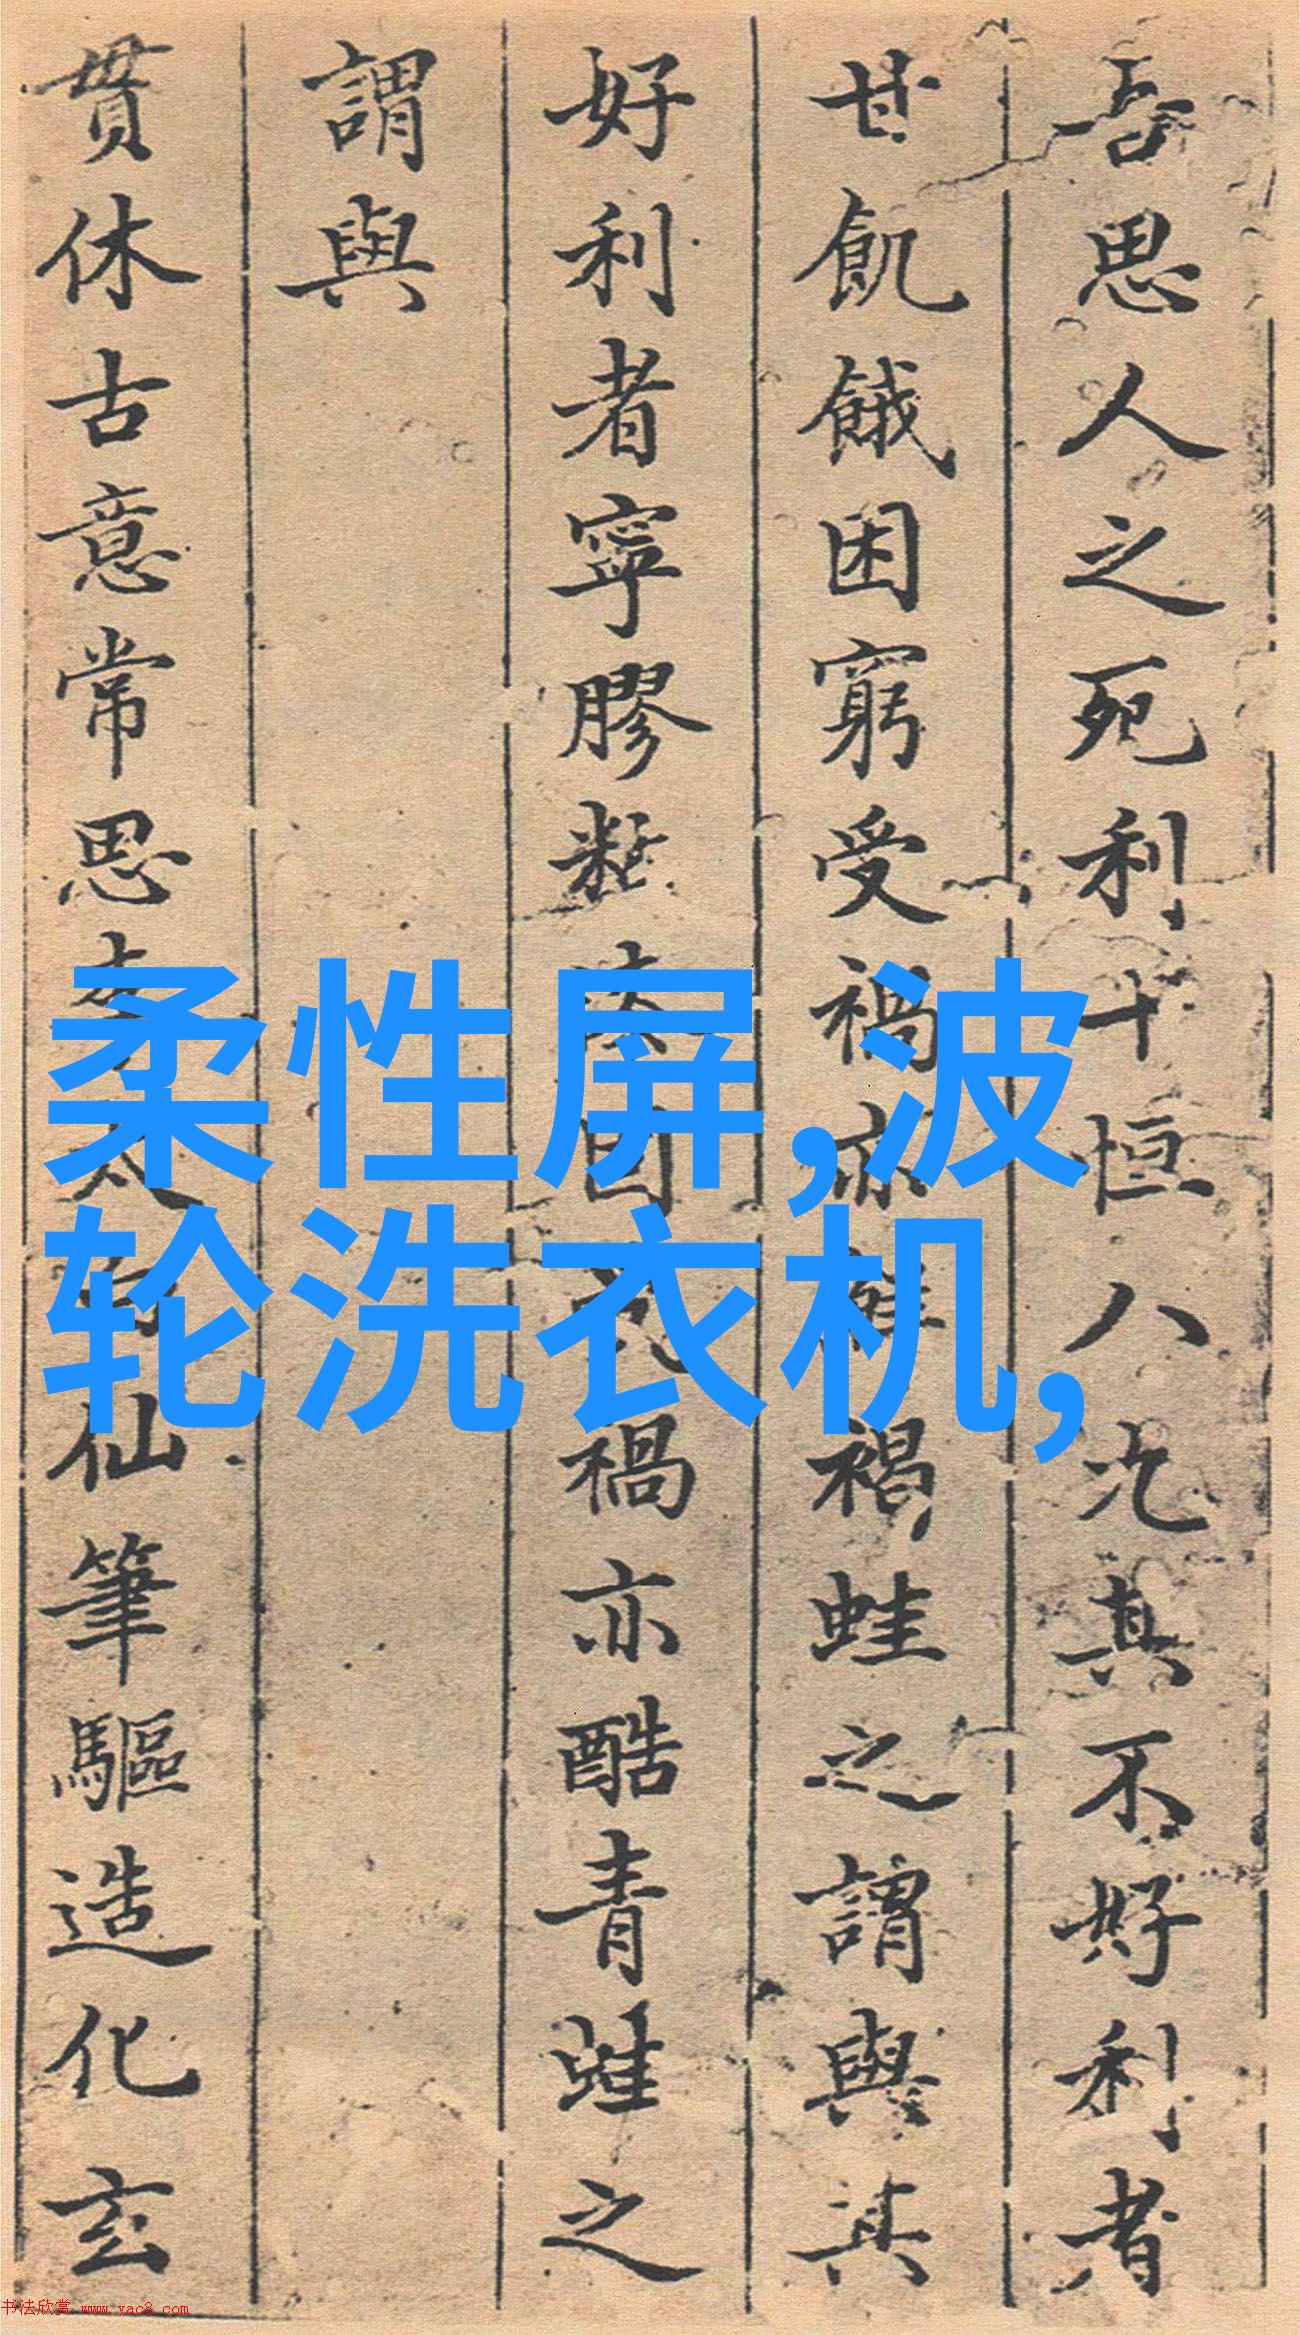 吾思人之死利十恒八九其不好利者
甘飢餓困窮受禍亦蛙禍蛙之謂與其
好利者寧膠粘因禍亦酷青蛙之
謂與
貫休古意常思李太白仙筆驅造化玄
柔性屏,波
轮洗衣机,
书法欣赏 www.yac8.com